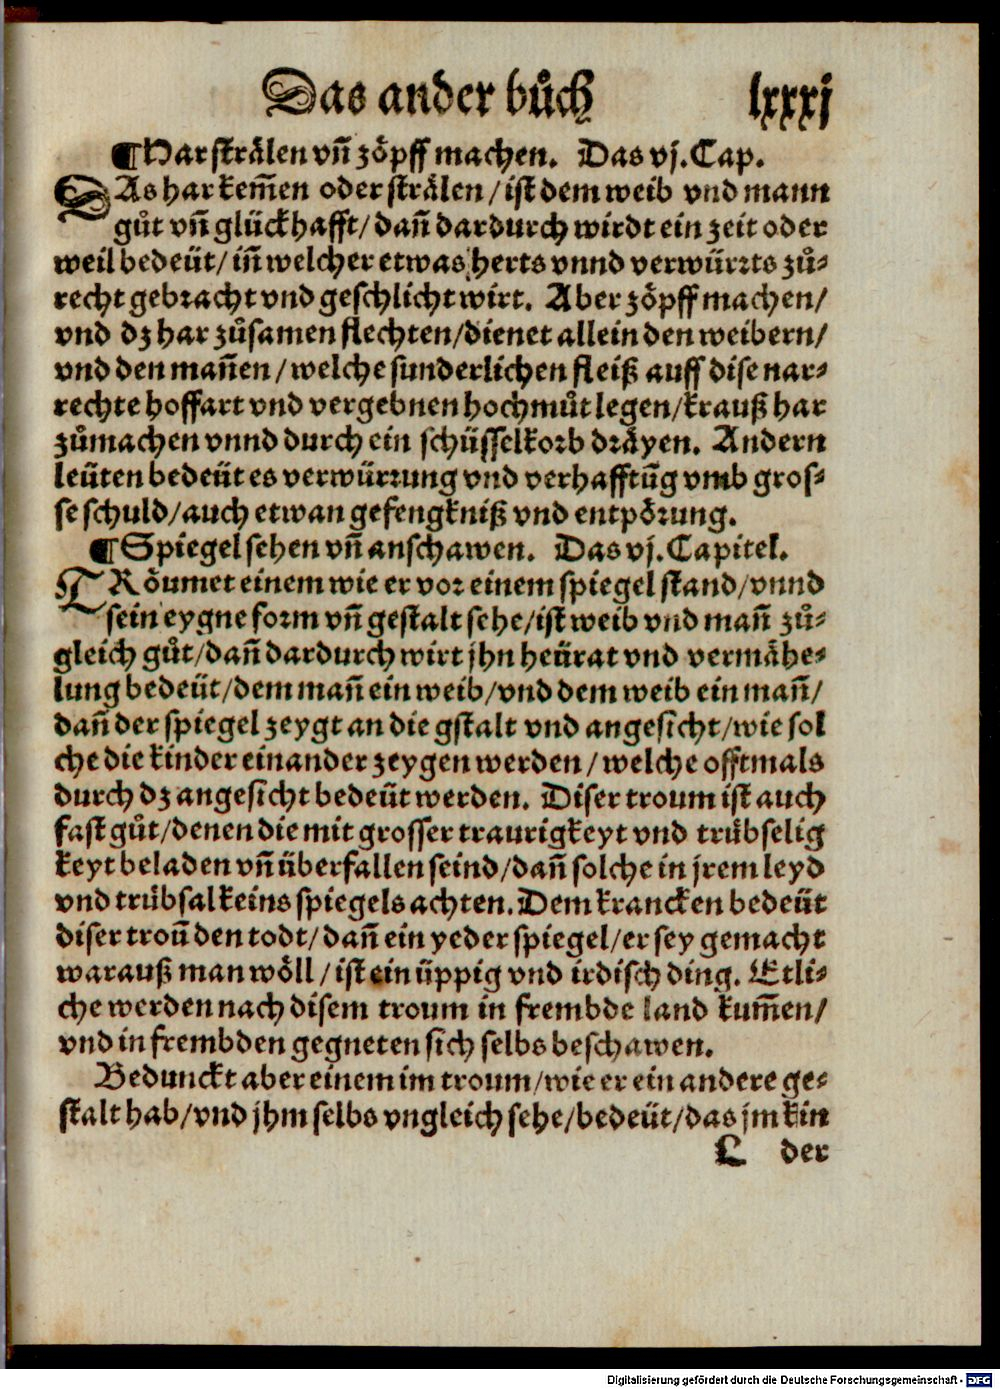 Das ander bůch lxxxj
¶Har strälen vñ zöpff machen. Das vj. Cap.
DAs har kem̃en oder strälen/ist dem weib vnd mann
gůt vñ glückhafft/dañ dardurch wirdt ein zeit oder
weil bedeüt/iñ welcher etwas herts vnnd verwürrts zů-
recht gebracht vnd geschlicht wirt. Aber zöpff machen/
vnd dz har zůsamen flechten/dienet allein den weibern/
vnd den mañen/welche sunderlichen fleiß auff dise nar-
rechte hoffart vnd vergebnen hochmůt legen/krauß har
zůmachen vnnd durch ein schüsselkorb dräyen. Andern
leüten bedeüt es verwürrung vnd verhafftũg vmb gros-
se schuld/auch etwan gefengkniß vnd entpörung.
¶Spiegel sehen vñ anschawen. Das vj. Capitel.
TRöumet einem wie er vor einem spiegel stand/vnnd
sein eygne form vñ gestalt sehe/ist weib vnd mañ zů-
gleich gůt/dañ dardurch wirt jhn heürat vnd vermähe-
lung bedeüt/dem mañ ein weib/vnd dem weib ein mañ/
dañ der spiegel zeygt an die gstalt vnd angesicht/wie sol
che die kinder einander zeygen werden/welche offtmals
durch dz angesicht bedeüt werden. Diser troum ist auch
fast gůt/denen die mit grosser traurigkeyt vnd trübselig
keyt beladen vñ überfallen seind/dañ solche in jrem leyd
vnd trübsal keins spiegels achten. Dem krancken bedeüt
diser troũ den todt/dañ ein yeder spiegel/er sey gemacht
warauß man wöll/ist ein üppig vnd irdisch ding. Etli-
che werden nach disem troum in frembde land kum̃en/
vnd in frembden gegneten sich selbs beschawen.
Bedunckt aber einem im troum/wie er ein andere ge-
stalt hab/vnd jhm selbs vngleich sehe/bedeüt/das jm kin
L der
Digitalisierung gefördert durch die Deutsche Forschungsgemeinschaft - DFG